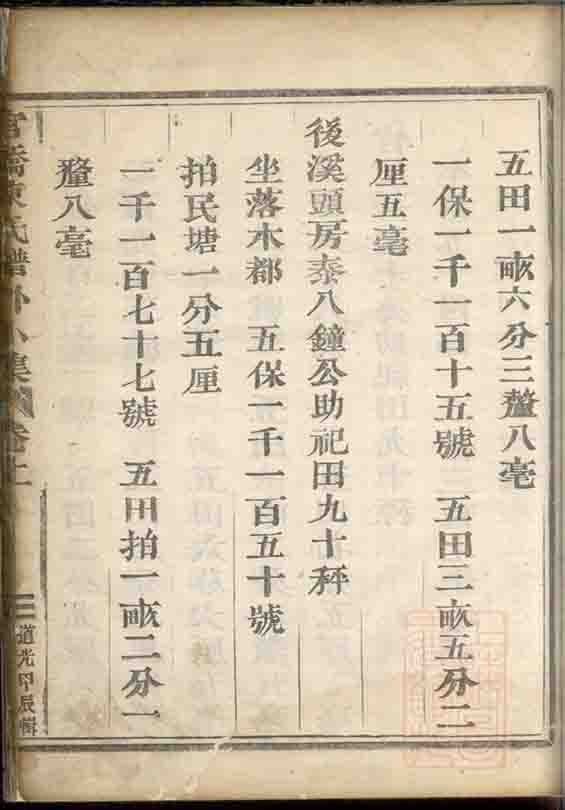 五田一畝六分三釐八毫
一保一千一百十五號 五田三畝五分二
厘五毫
後溪頭房泰八鐘公助祀田九十秤
坐落木都 五保一千一百五十號
拍民塘一分五厘
一千一百七十七號 五田拍一畝二分一
釐八毫
陳氏譜外小集 卷上
道光甲辰輯